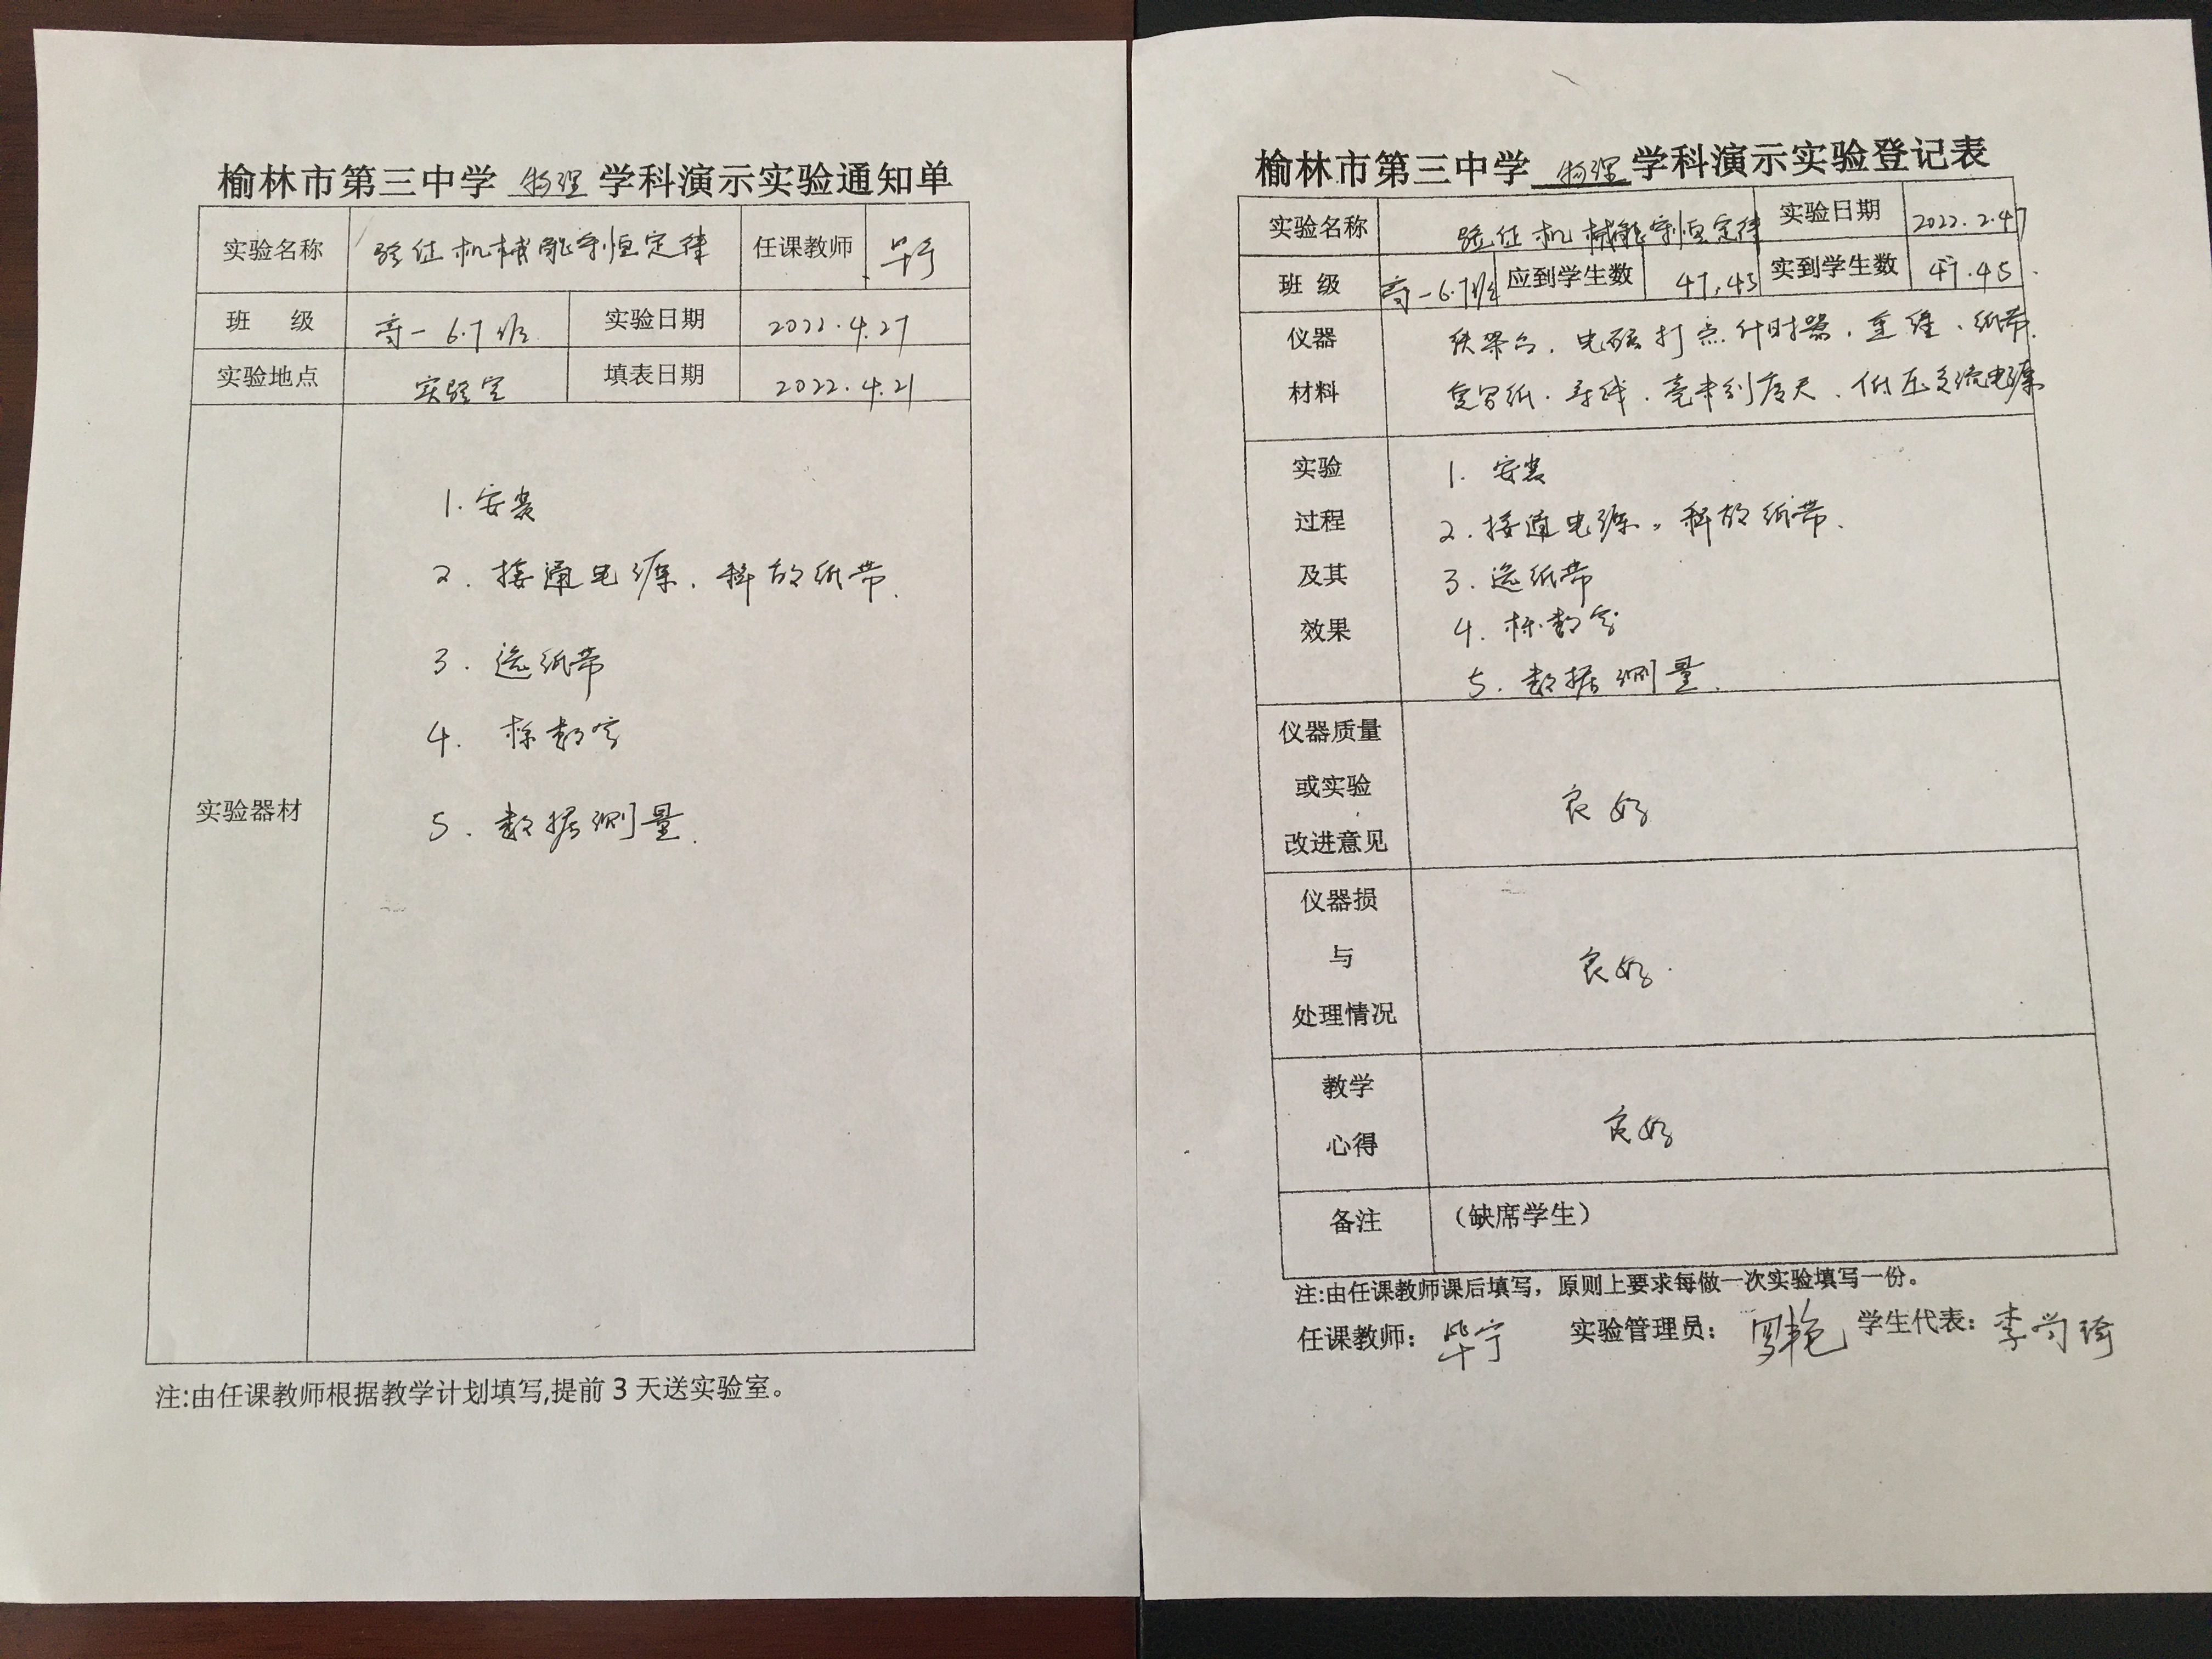 榆林市第三中学 物理 学科演示实验通知单
实验名称 验证机械能守恒定律 任课教师 毕宁
班 级 高一6.7班 实验日期 2022.4.27
实验地点 实验室 填表日期 2022.4.21
实验器材
1.安装
2.接通电源.释放纸带.
3.选纸带
4.标数字
5.数据测量.
注:由任课教师根据教学计划填写,提前3天送实验室。
榆林市第三中学 物理 学科演示实验登记表
实验名称 验证机械能守恒定律 实验日期 2022.2.47
班 级 高一6.7班 应到学生数 47.45 实到学生数 47.45.
仪器 铁架台.电磁打点计时器.重锤、纸带.
材料 复写纸.导线.毫米刻度尺、低压交流电源
实验 1.安装
过程 2.接通电源。释放纸带.
及其 3.选纸带
效果 4.标数字
5.数据测量.
仪器质量
或实验 良好
改进意见
仪器损
与 良好.
处理情况
教学
心得 良好
备注 (缺席学生)
注:由任课教师课后填写，原则上要求每做一次实验填写一份。
任课教师: 毕宁 实验管理员: 罗艳 学生代表: 李